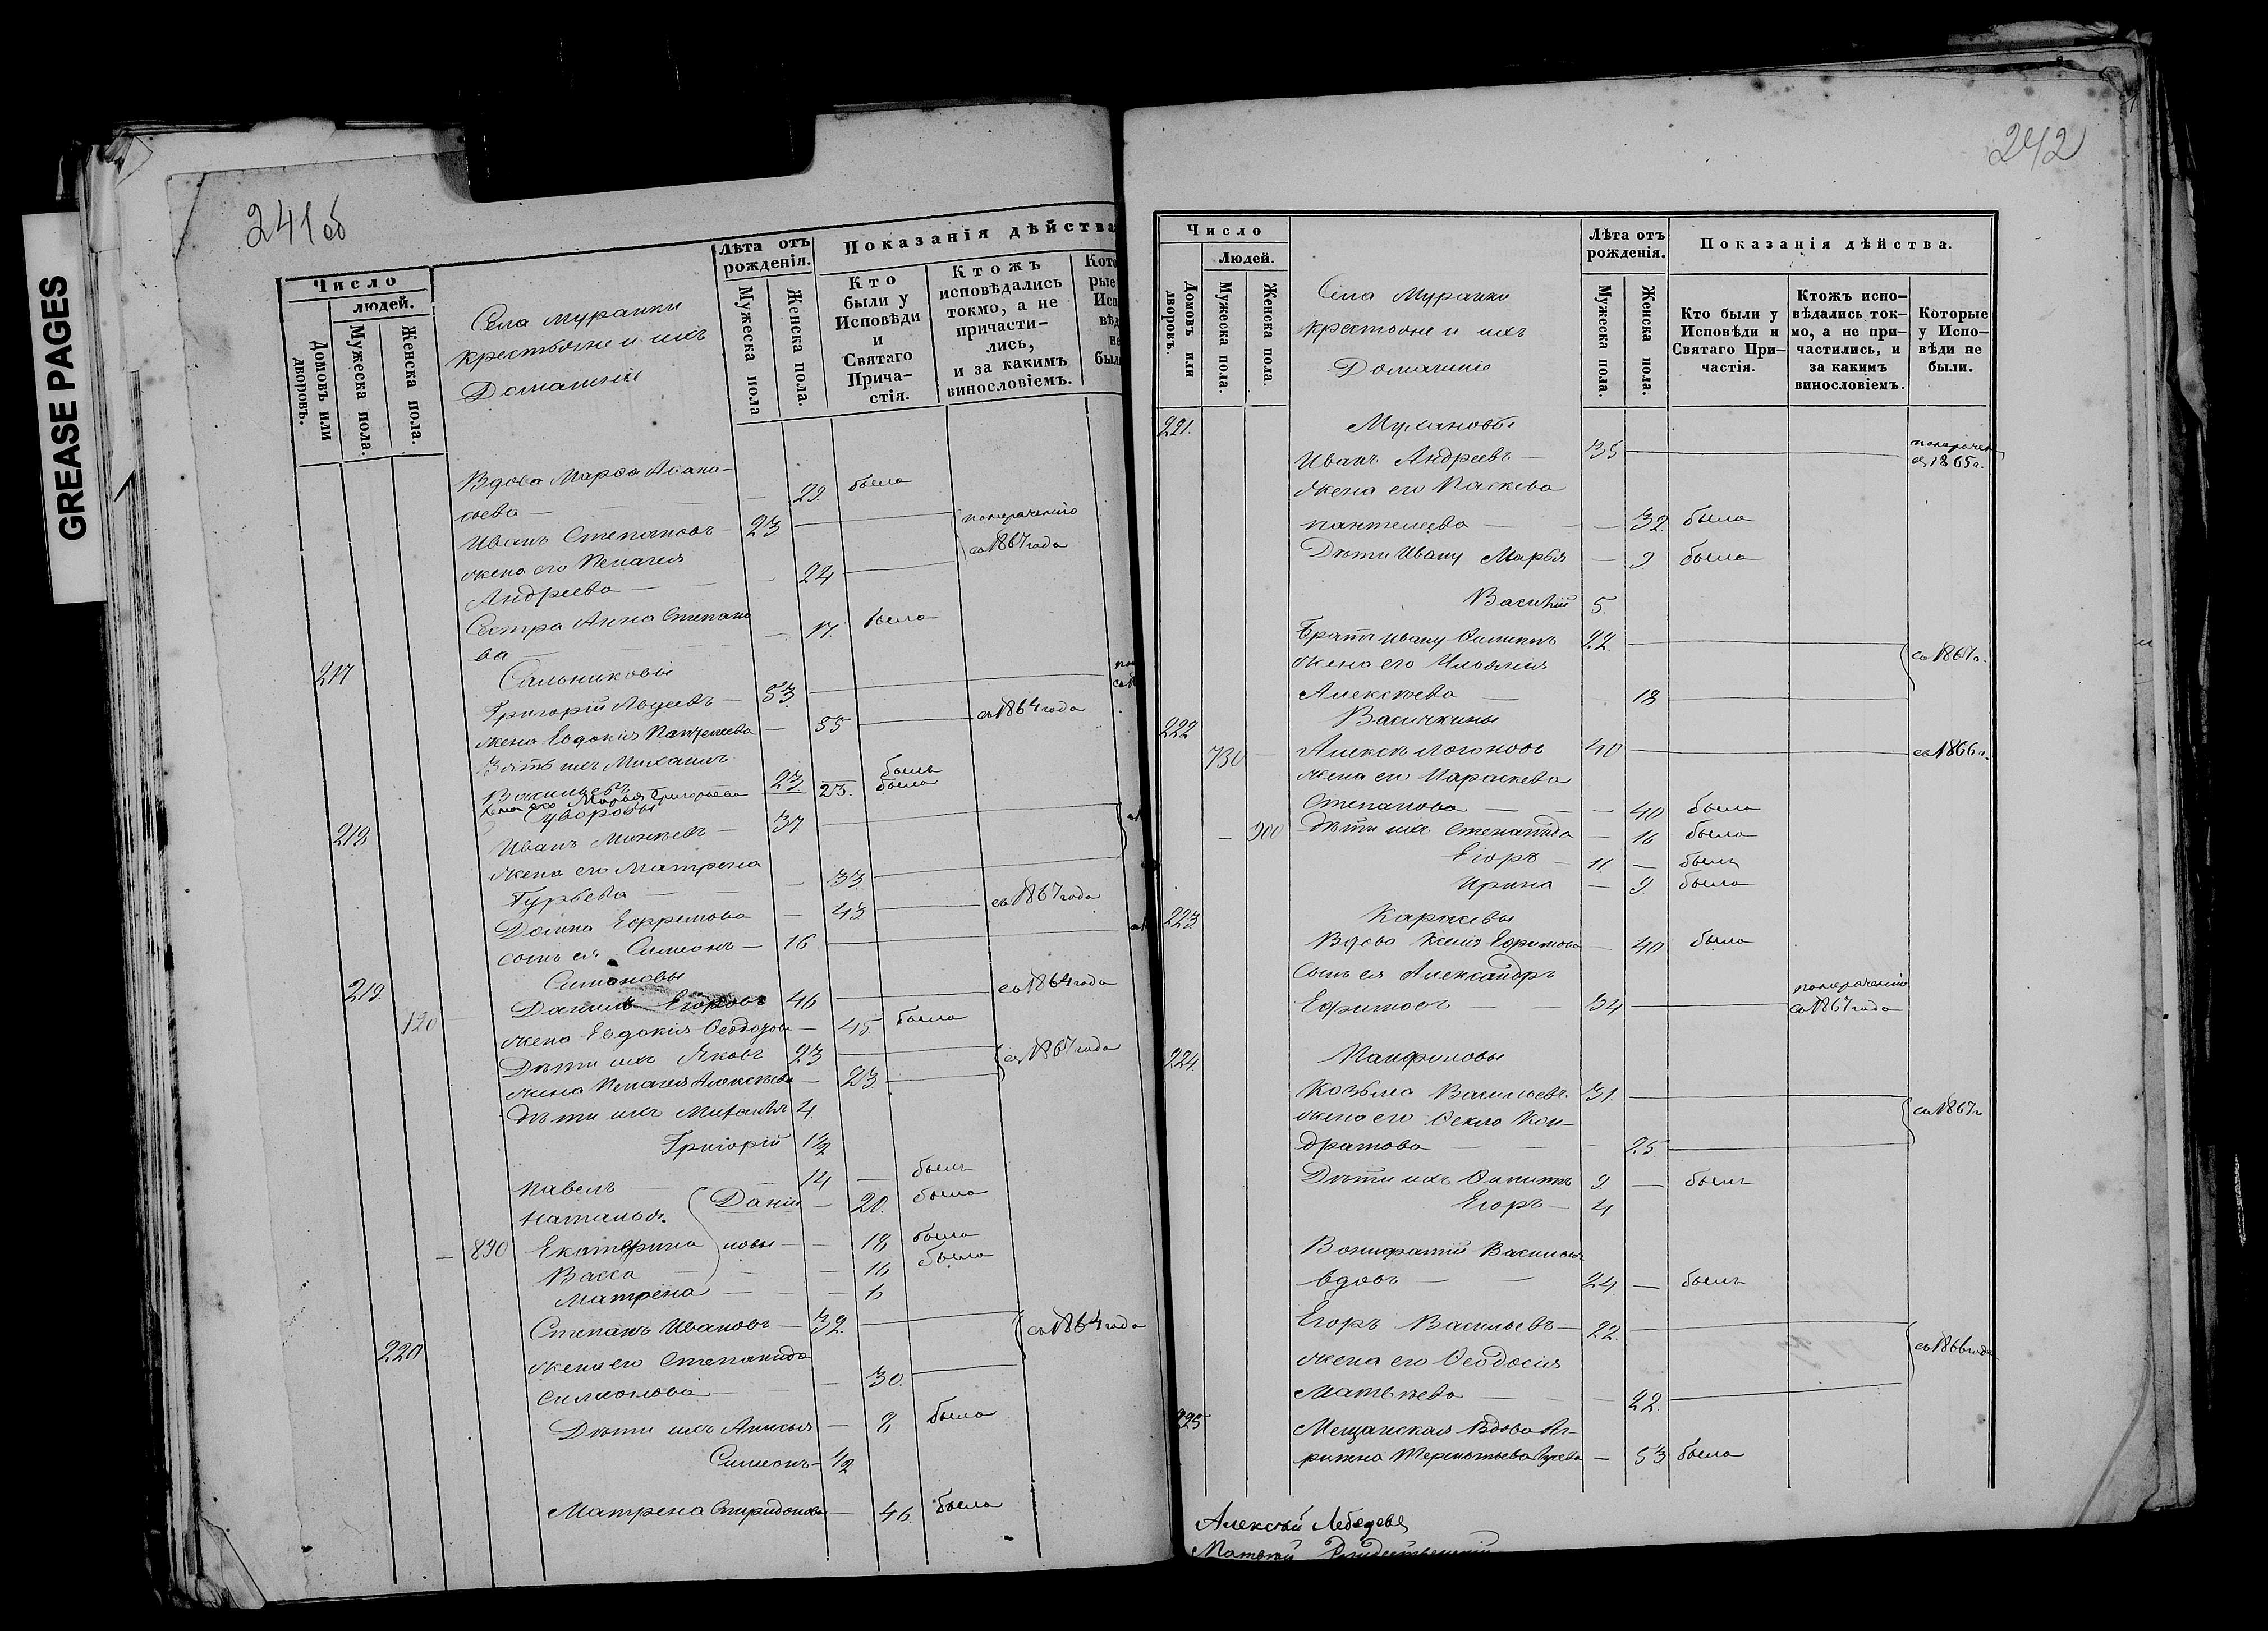 GREASE PAGES
241об
Число
людей.
Домовъ или дворовъ.
Мужеска пола.
Женска пола.
Села Муранки
крестьяне и ихъ
Домашніе
Лѣта отъ рожденія.
Мужеска пола
Женска пола.
Показанія дѣйства
Кто были у Исповѣди и Святаго Прича-стія.
Ктожъ исповѣдались токмо, а не причасти-лись, и за какимъ винословіемъ.
Вдова Марѳа Аѳана-
сьева — 29. была
Иванъ Степановъ — 23 понерачению
жена его Пелагея съ 1867 года
Андреева — 24
Сестра Анна Степано
ва — 17. была
217 Сальниковы
Григорій Авдеевъ — 53.
жена Евдокія Пантелеева — 55 съ 1864 года
Зять ихъ Михаилъ
Васильевъ 23. былъ
жена его Марья Григорьева 23. была
218 Суворовы
Иванъ Минѣевъ — 37.
жена его Матрена
Гурьева — 33.
Домна Ефремова — 43 съ 1867 года
сынъ ея Симеонъ — 16
219. Симоновы
Данилъ Егоровъ 46 съ 1864 года
720 жена Евдокія Ѳеодорова — 45. была
Дѣти ихъ Яковъ 23 съ 1867 года
жена Пелагея Алексѣева — 23
дѣти ихъ Михаилъ 4
Григорій 1½
Павелъ 14 — былъ
Наталья Данiи — 20. была
— 890 Екатерина ловы — 18 была
Васса — 16 была
Матрёна — 6
220 Степанъ Ивановъ — 32. съ 1864 года
жена его Степанида
Симионова — 30.
Дѣти ихъ Анисья — 8 была
Симеонъ — ½
Матрена Спиридонова — 46. была
242
Число
Людей.
Домовъ или дворовъ.
Мужеска пола.
Женска пола.
Села Муранки
крестьяне и ихъ
Домашніе
Лѣта отъ рожденія.
Мужеска пола.
Женска пола.
Показанія дѣйства.
Кто были у Исповѣди и Святаго При-частія.
Ктожъ испо-вѣдались ток-мо, а не при-частились, и за какимъ винословіемъ.
Которые у Испо-вѣди не были.
221. Мулановы
Иванъ Андреевъ — 35 понерачен съ 1865 г.
жена его Паскева
пантелеева — 32. была
Дѣти Ивану Марья — 9. была
Василій 5.
Братъ Ивану Филипъ 22. съ 1867 г.
жена его Ульянія
Алексѣева — 18
222 Васичкины
730 Алексѣ Логоновъ 40 съ 1866 г.
жена его Параскева
Степанова — 40 была
— 900 Дѣти ихъ Степанида — 16 была
Егоръ — 11. — былъ
Ирина — 9. была
223. Карасевы
Вдова Ксенія Ефимова — 40 была
Сынъ ея Александръ
Ефимовъ — 34 понерачению съ 1867 года
224. Панфиловы
Козьма Васильевъ 31. съ 1867 г
жена его Ѳекла Кон-
дратова — 25.
Дѣти ихъ Филипъ 9 — былъ
Егоръ — 4
Вонифатій Васильевъ
вдовъ — 24 — былъ
Егоръ Васильевъ — 22. съ 1866 года
жена его Ѳеодосія
Матвѣева — 22.
225 Мещанская Вдова Аг-
рипина Терентьева — 53. была
Алексѣй Лебедевъ
Матвѣй Рождественскій